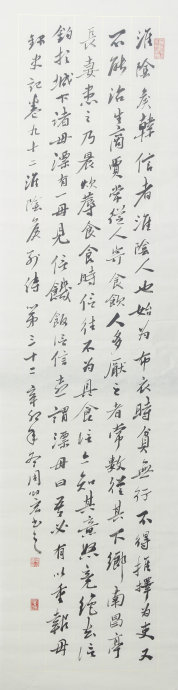 淮陰侯韓信者淮陰人也始為布衣時貧無行不得推擇為吏又
不能治生商賈常從人寄食飲人多厭之者常數從其下鄉南昌亭
長妻患之乃晨炊蓐食食時信往不為具食信亦知其意怒竟絕去信
釣於城下諸母漂有一母見信饑飯信信喜謂漂母曰吾必有以重報母
錄史記卷九十二淮陰侯列傳第三十二辛卯年冬周